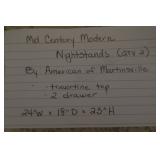 Mid Century Modern
Nightstands (QTY 2)
By American of Martinsville
· travertine top
· 2 drawer
24"W x 18"D x 23"H